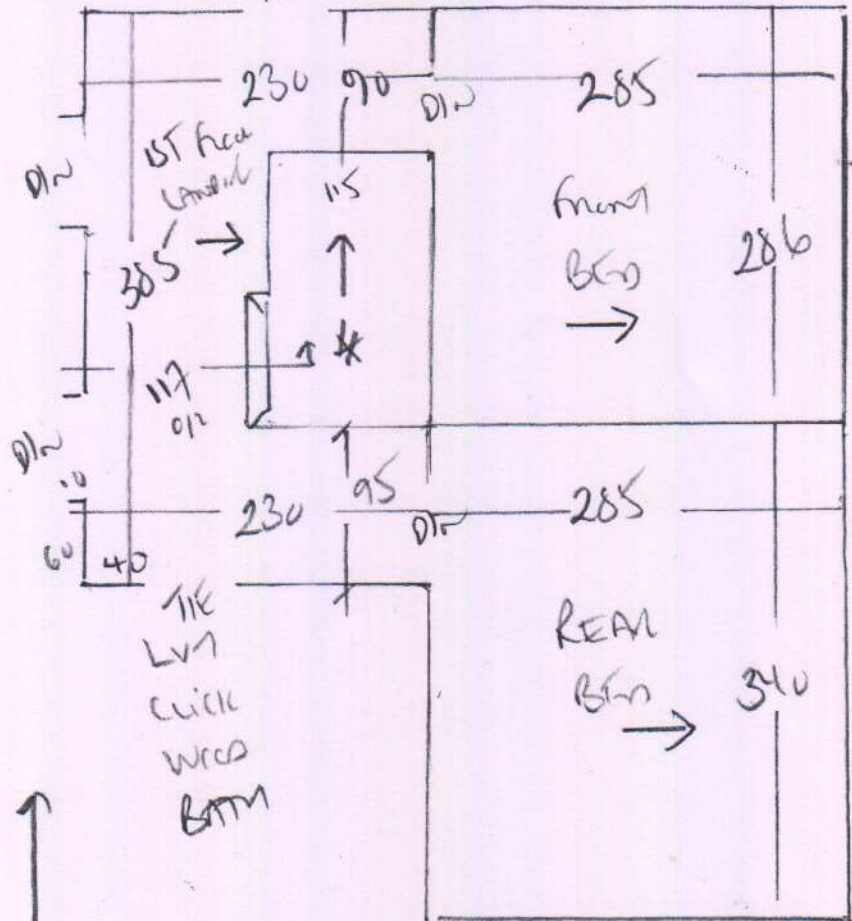 230 90 D/W 285
1ST Floor
LANDING
D/W
385
115
Front
BED
286
117
O/R
D/W
10
60
40
230 95 D/W 285
TILE
CLICK
BATH
REAR
BED
340